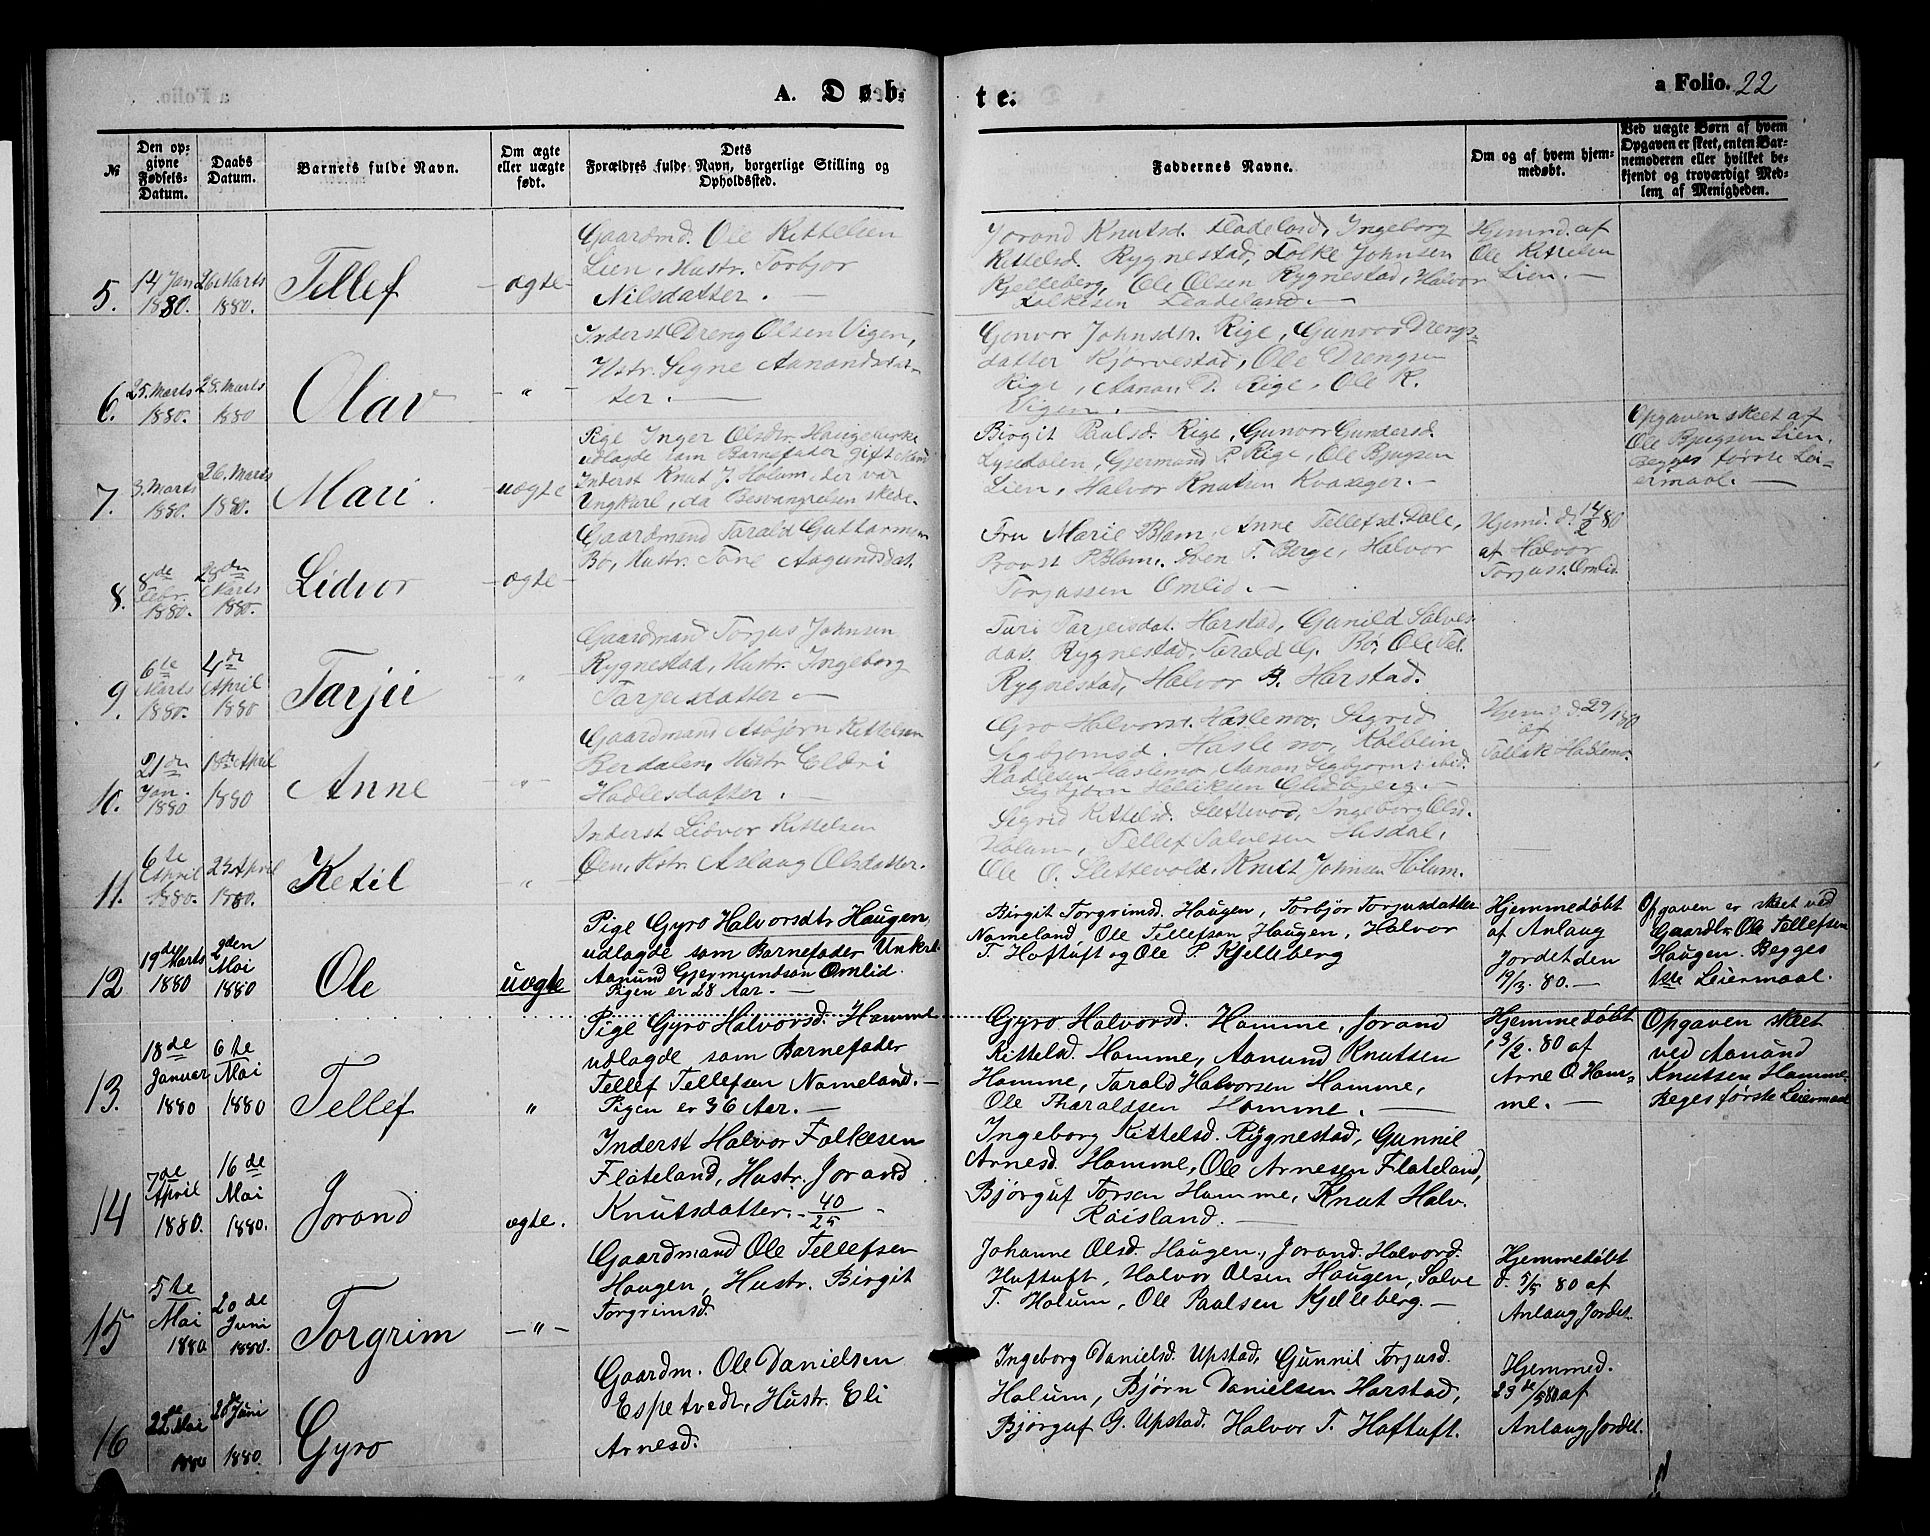 A. Døb-
te.
a Folio. 22
№
Den op-
givne
Fødsels-
Datum.
Daabs
Datum.
Barnets fulde Navn.
Om ægte
eller uægte
født.
Dets
Forældres fulde Navn, borgerlige Stilling og
Opholdssted.
Faddernes Navne.
Om og af hvem hjem-
medøbt.
Ved uægte Børn af hvem
Opgaven er skeet, enten Bar-
nemoderen eller hvilket be-
kjendt og troværdigt Med-
lem af Menigheden.
5.
14 Jan
1880.
26 Marts
1880.
Tellef
ægte
Gaardmd. Ole Kittelsen
Lien, Hustr. Torbjor
Nilsdatter.
Jorand Knutsd. Ingeborg
Kittelsd. Rygnestad, Folke Johnsen
Kjelleberg, Ole Olsen Rygnestad, Halvor
Folkesen
Hjemd. af
Ole Kittelsen
Lien.
6.
25. Marts
1880.
28. Marts
1880.
Olav
"
Inderst Dreng Olsen Vigen,
Hstr. Signe Aanundsdat-
ter.
Gonvor Johnsdtr. Rige, Gunvor Drengs-
datter Kjørvestad, Ole Drengsen
Rige, Aanon D. Rige, Ole K.
Vigen.
7.
3. Marts
1880.
26. Marts
1880.
Mari
uægte
Pige Inger Olsdtr.
udlagde som Barnefader gift Mand
Inderst Knut J. Holum, der var
Ungkarl, da Besvangrelsen skede.
Birgit Paalsd. Rige, Gunvor Gundersd.
Lysedalen, Gjermund P. Rige, Ole Bjugsen
Lien, Halvor Knutsen
Opgaven skeet af
Ole Bjugsen Lien.
Begges første Lei-
ermaal.
8.
8de
Febr.
1880.
Marts
1880.
Lidvor
ægte
Gaardmand Tarald Guttormsen
Bø, Hustr. Tone Aagundsdat.
Fru Marie Blom, Anne Tellefsd. Dale,
Provst P. Blom, Sven T. Berge, Halvor
Torjussen Omlid.
Hjemd. d. 14/2 80
af Halvor
Torjuss. Omlid.
9.
6te
Marts
1880.
4de
April
1880
Tarjei
"
Gaardmand Torjus Johnsen
Rygnestad, Hustr. Ingeborg
Tarjeisdatter.
Turi Tarjeisdat. Harstad, Gunild Salves-
dat. Rygnestad, Tarald G. Bø, Ole Tel.
Rygnestad, Halvor B. Harstad.
10.
21de
Jan.
1880
18de April
1880
Anne
"
Gaardmand Asbjørn Kittelsen
Berdalen, Hustr. Eldri
Hadlesdatter.
Gro Halvorsd. Haslemo, Sigrid
Sigbjørnsd. Haslemo, Kolbein
Hadlesen Haslemo, Aanon Sigbjørns. ibid.
Hjemd. d. 29/1 80
af
Haslemo.
11.
6te
April
1880.
25 April
1880.
Ketil
"
Inderst Lidvor Kittelsen
Øen, Hstr. Aslaug Olsdatter.
Sigrid Kittelsd. Slettevold, Ingeborg Olsd.
Holum, Tellef Salvesen Hisdal,
Ole O. Slettevold, Knut Johnsen Holum.
12
19de Marts
1880
2den
Mai
1880
Ole
uægte
Pige Gyro Halvorsdtr Haugen
udlagde som Barnefader Unkrl.
Aanund Gjermundson Omlid.
Pigen er 28 Aar.
Birgit Torgrimsd. Haugen, Torbjør Torjusdatter
Nomeland Ole Tellefson Haugen, Halvor
T. Hoftuft og Ole P. Kjelleberg
Hjemmedøbt
af Anlaug
Jordet den
19/3. 80.
Opgaven er skeet ved
Gaardbr. Ole Tellefsen
Haugen. Begges
1ste Leiermaal.
13.
18de
Januar
1880
6te
Mai
1880
Tellef
"
Pige Gyro Halvorsd. Homme
udlagde som Barnefader
Tellef Tellefsen Nomeland.
Pigen er 36 Aar.
Gyro Halvorsd. Homme, Jorand
Kittelsd. Homme, Aanund Knutsen
Homme, Tarald Halvorsen Homme,
Ole Tharaldsen Homme.
Hjemmedøbt
3/2. 80 af
Arne O. Hom-
me.
Opgaven skeet
ved Aanund
Knutsen Homme.
Beges første Leiermaal
14
7de
April
1880.
16de
Mai
1880.
Jorand
ægte.
Inderst Halvor Folkesen
Flateland, Hustr. Jorand
Knutsdatter. 40/25
Ingeborg Kittelsd. Rygnestad, Gunnil
Arnesd. Homme, Ole Arnesen Flateland,
Bjørguf Torsen Homme, Knut Halv.
Roisland.
15
5te
Mai
1880
20de
Juni
1880.
Torgrim
"
Gaardmand Ole Tellefsen
Haugen, Hustr. Birgit
Torgrimsd.
Johanne Olsd. Haugen, Jorand Halvord.
Huftuft, Halvor Olsen Haugen, Salve
T. Holum, Ole Paalsen Kjelleberg.
Hjemmedøbt
d. 5/5 80 af
Anlaug Jordet.
16
22de Mai
1880
20de Juni
1880.
Gyro
Gaardm. Ole Danielsen
Espetvedt, Hustr. Eli
Arnesd.
Ingeborg Danielsd. Upstad, Gunnil Torjusd.
Holum, Bjørn Danielsen Harstad,
Bjørguf G. Upstad. Halvor T. Hoftuft.
Hjemmed.
23de/5 80 af
Anlaug Jordet.